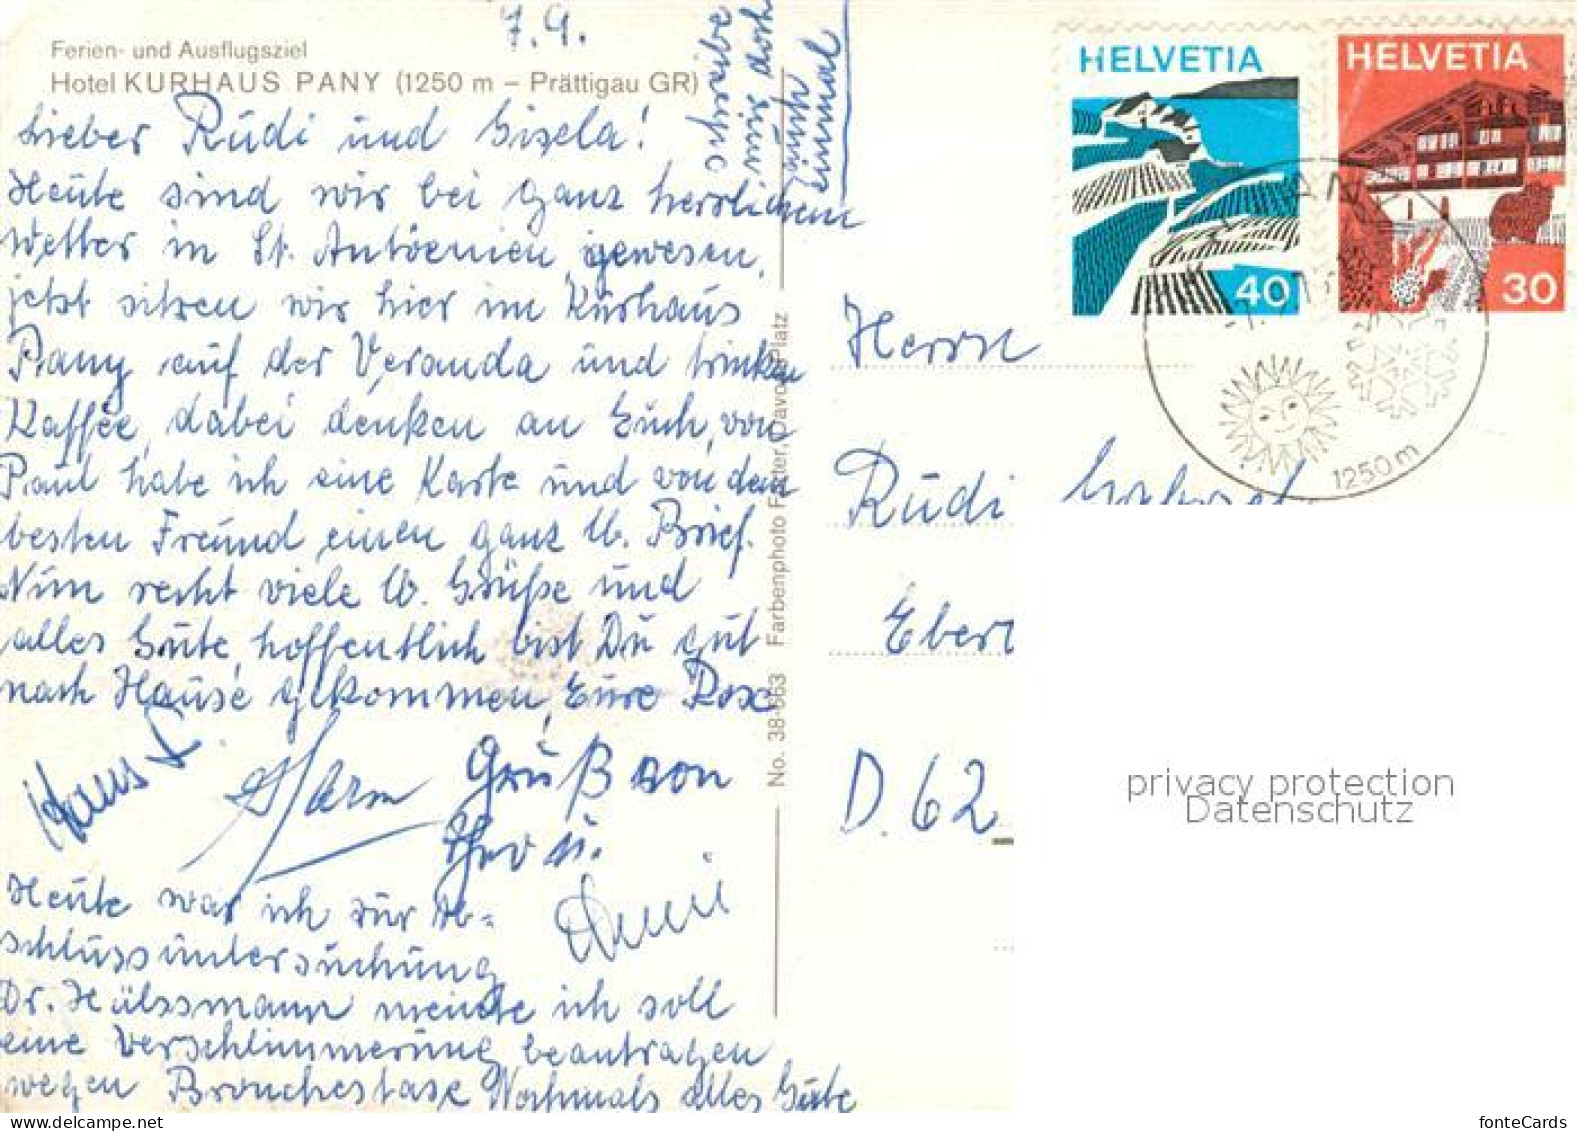 7.9.
Ferien- und Ausflugsziel
Hotel KURHAUS PANY (1250 m – Prättigau GR)
Lieber Rüdi und Gisela!
Heute sind wir bei ganz herrlichem
Wetter in St. Antönien gewesen,
jetzt sitzen wir hier im Kurhaus
Pany auf der Veranda und trinken
Kaffee, dabei denken an Euch, von
Paul habe ich eine Karte und von dem
besten Freund einen ganz lb. Brief.
Nun recht viele lb. Grüße und
alles Gute, hoffentlich bist Du gut
nach Hause gekommen, Eure Rose
Hans
Gruß von
Heute war ich zur Ab-
schlussuntersuchung
Dr. Hülssmann meinte ich soll
eine Verschlimmerung beantragen
wegen Bronchestase Nochmals alles Gute
schreibe
mir doch
auch
einmal
No. 38-663 Farbenphoto Furter, Davos-Platz
HELVETIA
40
HELVETIA
30
PANY
1250 m
Herrn
Rüdi
Eber
D. 62
privacy protection
Datenschutz
www.delcampe.net
fonteCards